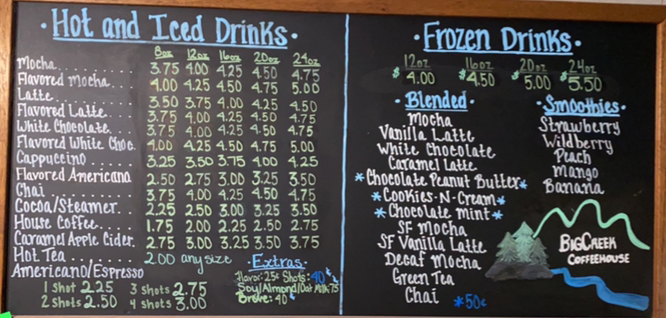 Hot and Iced Drinks
8oz 12oz 16oz 20oz 24oz
Mocha 3.75 4.00 4.25 4.50 4.75
Flavored Mocha 4.00 4.25 4.50 4.75 5.00
Latte 3.50 3.75 4.00 4.25 4.50
Flavored Latte 3.75 4.00 4.25 4.50 4.75
White Chocolate 3.75 4.00 4.25 4.50 4.75
Flavored White Choc. 4.00 4.25 4.50 4.75 5.00
Cappuccino 3.25 3.50 3.75 4.00 4.25
Flavored Americano 2.50 2.75 3.00 3.25 3.50
Chai 3.75 4.00 4.25 4.50 4.75
Cocoa/Steamer 2.25 2.50 3.00 3.25 3.50
House Coffee 1.75 2.00 2.25 2.50 2.75
Caramel Apple Cider 2.75 3.00 3.25 3.50 3.75
Hot Tea 2.00 any size
Americano/Espresso
1 shot 2.25 3 shots 2.75
2 shots 2.50 4 shots 3.00
Extras
Flavor: 25¢ Shots: 40¢
Soy/Almond/Oat Milk: 75
Breve: 40¢
Frozen Drinks
12oz 16oz 20oz 24oz
$4.00 $4.50 $5.00 $5.50
Blended
Mocha
Vanilla Latte
White Chocolate
Caramel Latte
*Chocolate Peanut Butter*
*Cookies-N-Cream*
*Chocolate Mint*
SF Mocha
SF Vanilla Latte
Decaf Mocha
Green Tea
Chai
*50¢
Smoothies
Strawberry
Wildberry
Peach
Mango
Banana
BIGCREEK
COFFEEHOUSE